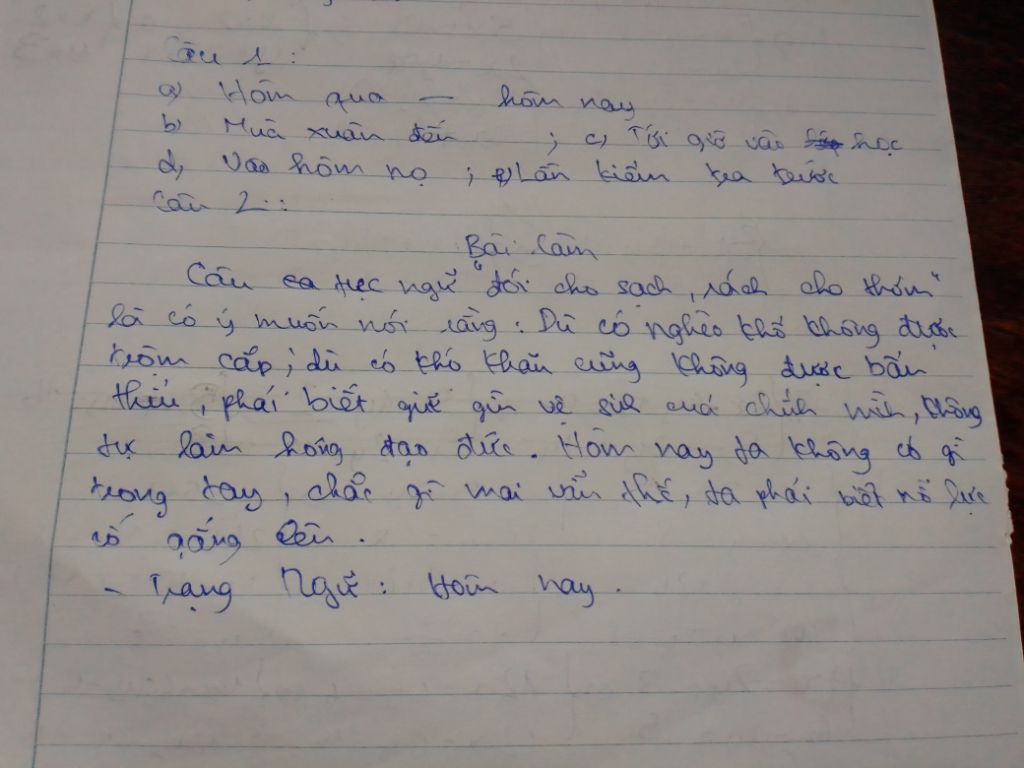 Câu 1 :
a) Hôm qua — hôm nay
b) Mùa xuân đến ; c) Tới giờ vào học
d) Vào hôm nọ ; e) Lần kiểm tra trước
Câu 2 :
Bài làm
Câu ca tục ngữ "đói cho sạch, rách cho thơm"
là có ý muốn nói rằng : Dù có nghèo khổ không được
trộm cắp ; dù có khó khăn cũng không được bẩn
thỉu, phải biết giữ gìn vệ sinh cuả chính mình, không
tự làm hỏng đạo đức. Hôm nay ta không có gì
trong tay, chắc gì mai vẫn thế, ta phải biết nỗ lực
cố gắng lên .
- Trạng Ngữ : Hôm nay .